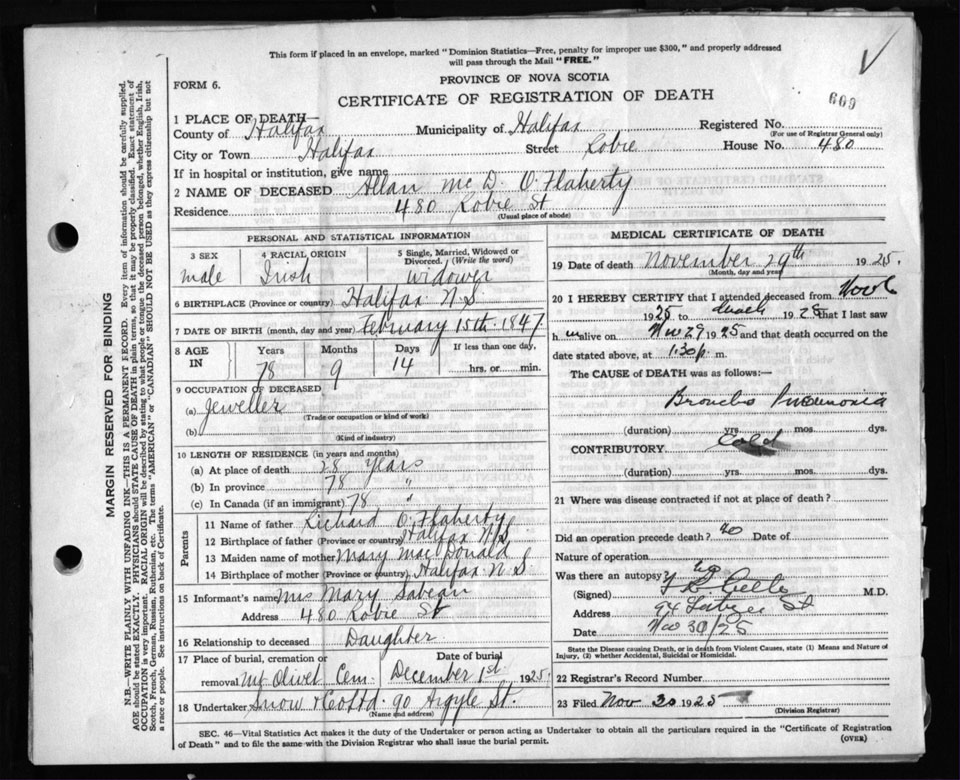 This form if placed in an envelope, marked "Dominion Statistics—Free, penalty for improper use $300," and properly addressed
will pass through the Mail "FREE."
FORM 6.
PROVINCE OF NOVA SCOTIA
CERTIFICATE OF REGISTRATION OF DEATH
609
1 PLACE OF DEATH—
County of Halifax Municipality of Halifax Registered No.
(For use of Registrar General only)
City or Town Halifax Street Robie House No. 480
If in hospital or institution, give name
2 NAME OF DECEASED Allan Mc D. O'Flaherty
Residence 480 Robie St
(Usual place of abode)
PERSONAL AND STATISTICAL INFORMATION
3 SEX male
4 RACIAL ORIGIN Irish
5 Single, Married, Widowed or Divorced. (Write the word) widower
6 BIRTHPLACE (Province or country) Halifax N.S.
7 DATE OF BIRTH (month, day and year) February 15th 1847
8 AGE IN Years 78 Months 9 Days 14 If less than one day, hrs. or min.
9 OCCUPATION OF DECEASED
(a) Jeweller
(Trade or occupation or kind of work)
(b)
(Kind of industry)
10 LENGTH OF RESIDENCE (in years and months)
(a) At place of death 28 years
(b) In province 78 "
(c) In Canada (if an immigrant) 78 "
Parents
11 Name of father Richard O'Flaherty
12 Birthplace of father (Province or country) Halifax N.S.
13 Maiden name of mother Mary MacDonald
14 Birthplace of mother (Province or country) Halifax N S
15 Informant's name Mrs Mary Sabean
Address 480 Robie St
16 Relationship to deceased Daughter
17 Place of burial, cremation or removal Mt Olivet Cem. Date of burial December 1st 1925.
18 Undertaker Snow & Co Ltd. 90 Argyle St.
(Name and address)
MEDICAL CERTIFICATE OF DEATH
19 Date of death November 29th 1925.
(Month, day and year)
20 I HEREBY CERTIFY that I attended deceased from Nov
1925 to death 1925 that I last saw
h im alive on Nov 29 1925 and that death occurred on the
date stated above, at 1:30 p. m.
The CAUSE of DEATH was as follows:—
Broncho Pneumonia
(duration) yrs. mos. dys.
CONTRIBUTORY Cold
(duration) yrs. mos. dys.
21 Where was disease contracted if not at place of death?
Did an operation precede death? no Date of
Nature of operation
Was there an autopsy? no
(Signed) M.D.
Address 94 St
Date Nov 30/25
State the Disease causing Death, or in death from Violent Causes, state (1) Means and Nature of
Injury, (2) whether Accidental, Suicidal or Homicidal.
22 Registrar's Record Number
23 Filed Nov 30 1925
(Division Registrar)
SEC. 46—Vital Statistics Act makes it the duty of the Undertaker or person acting as Undertaker to obtain all the particulars required in the "Certificate of Registration
of Death" and to file the same with the Division Registrar who shall issue the burial permit.
(OVER)
MARGIN RESERVED FOR BINDING
N.B.—WRITE PLAINLY WITH UNFADING INK—THIS IS A PERMANENT RECORD. Every item of information should be carefully supplied.
AGE should be stated EXACTLY. PHYSICIANS should STATE CAUSE OF DEATH in plain terms, so that it may be properly classified. Exact statement of
OCCUPATION is very important. RACIAL ORIGIN will be described by stating to what people or tongue the deceased person belonged, whether English, Irish,
Scotch, French, German, Russian, Ruthenian, etc. The terms "AMERICAN" or "CANADIAN" SHOULD NOT BE USED as they express citizenship but not
a race or people. See instructions on back of Certificate.